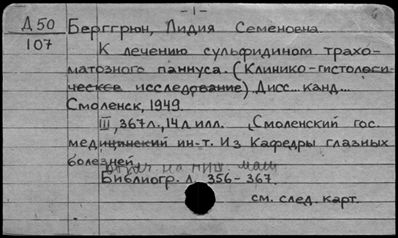 - 1 -
Д 50
107
Берггрюн, Лидия Семеновна.
К лечению сульфидином трахо-
матозного паннуса. (Клинико-гистологи-
ческое исследование) Дисс... канд...
Смоленск, 1949.
III, 367 л., 14 л. илл. (Смоленский гос.
медицинский ин-т. Из Кафедры глазных
болезней
на пиш. маш
Библиогр. л. 356-367.
см. след. карт.